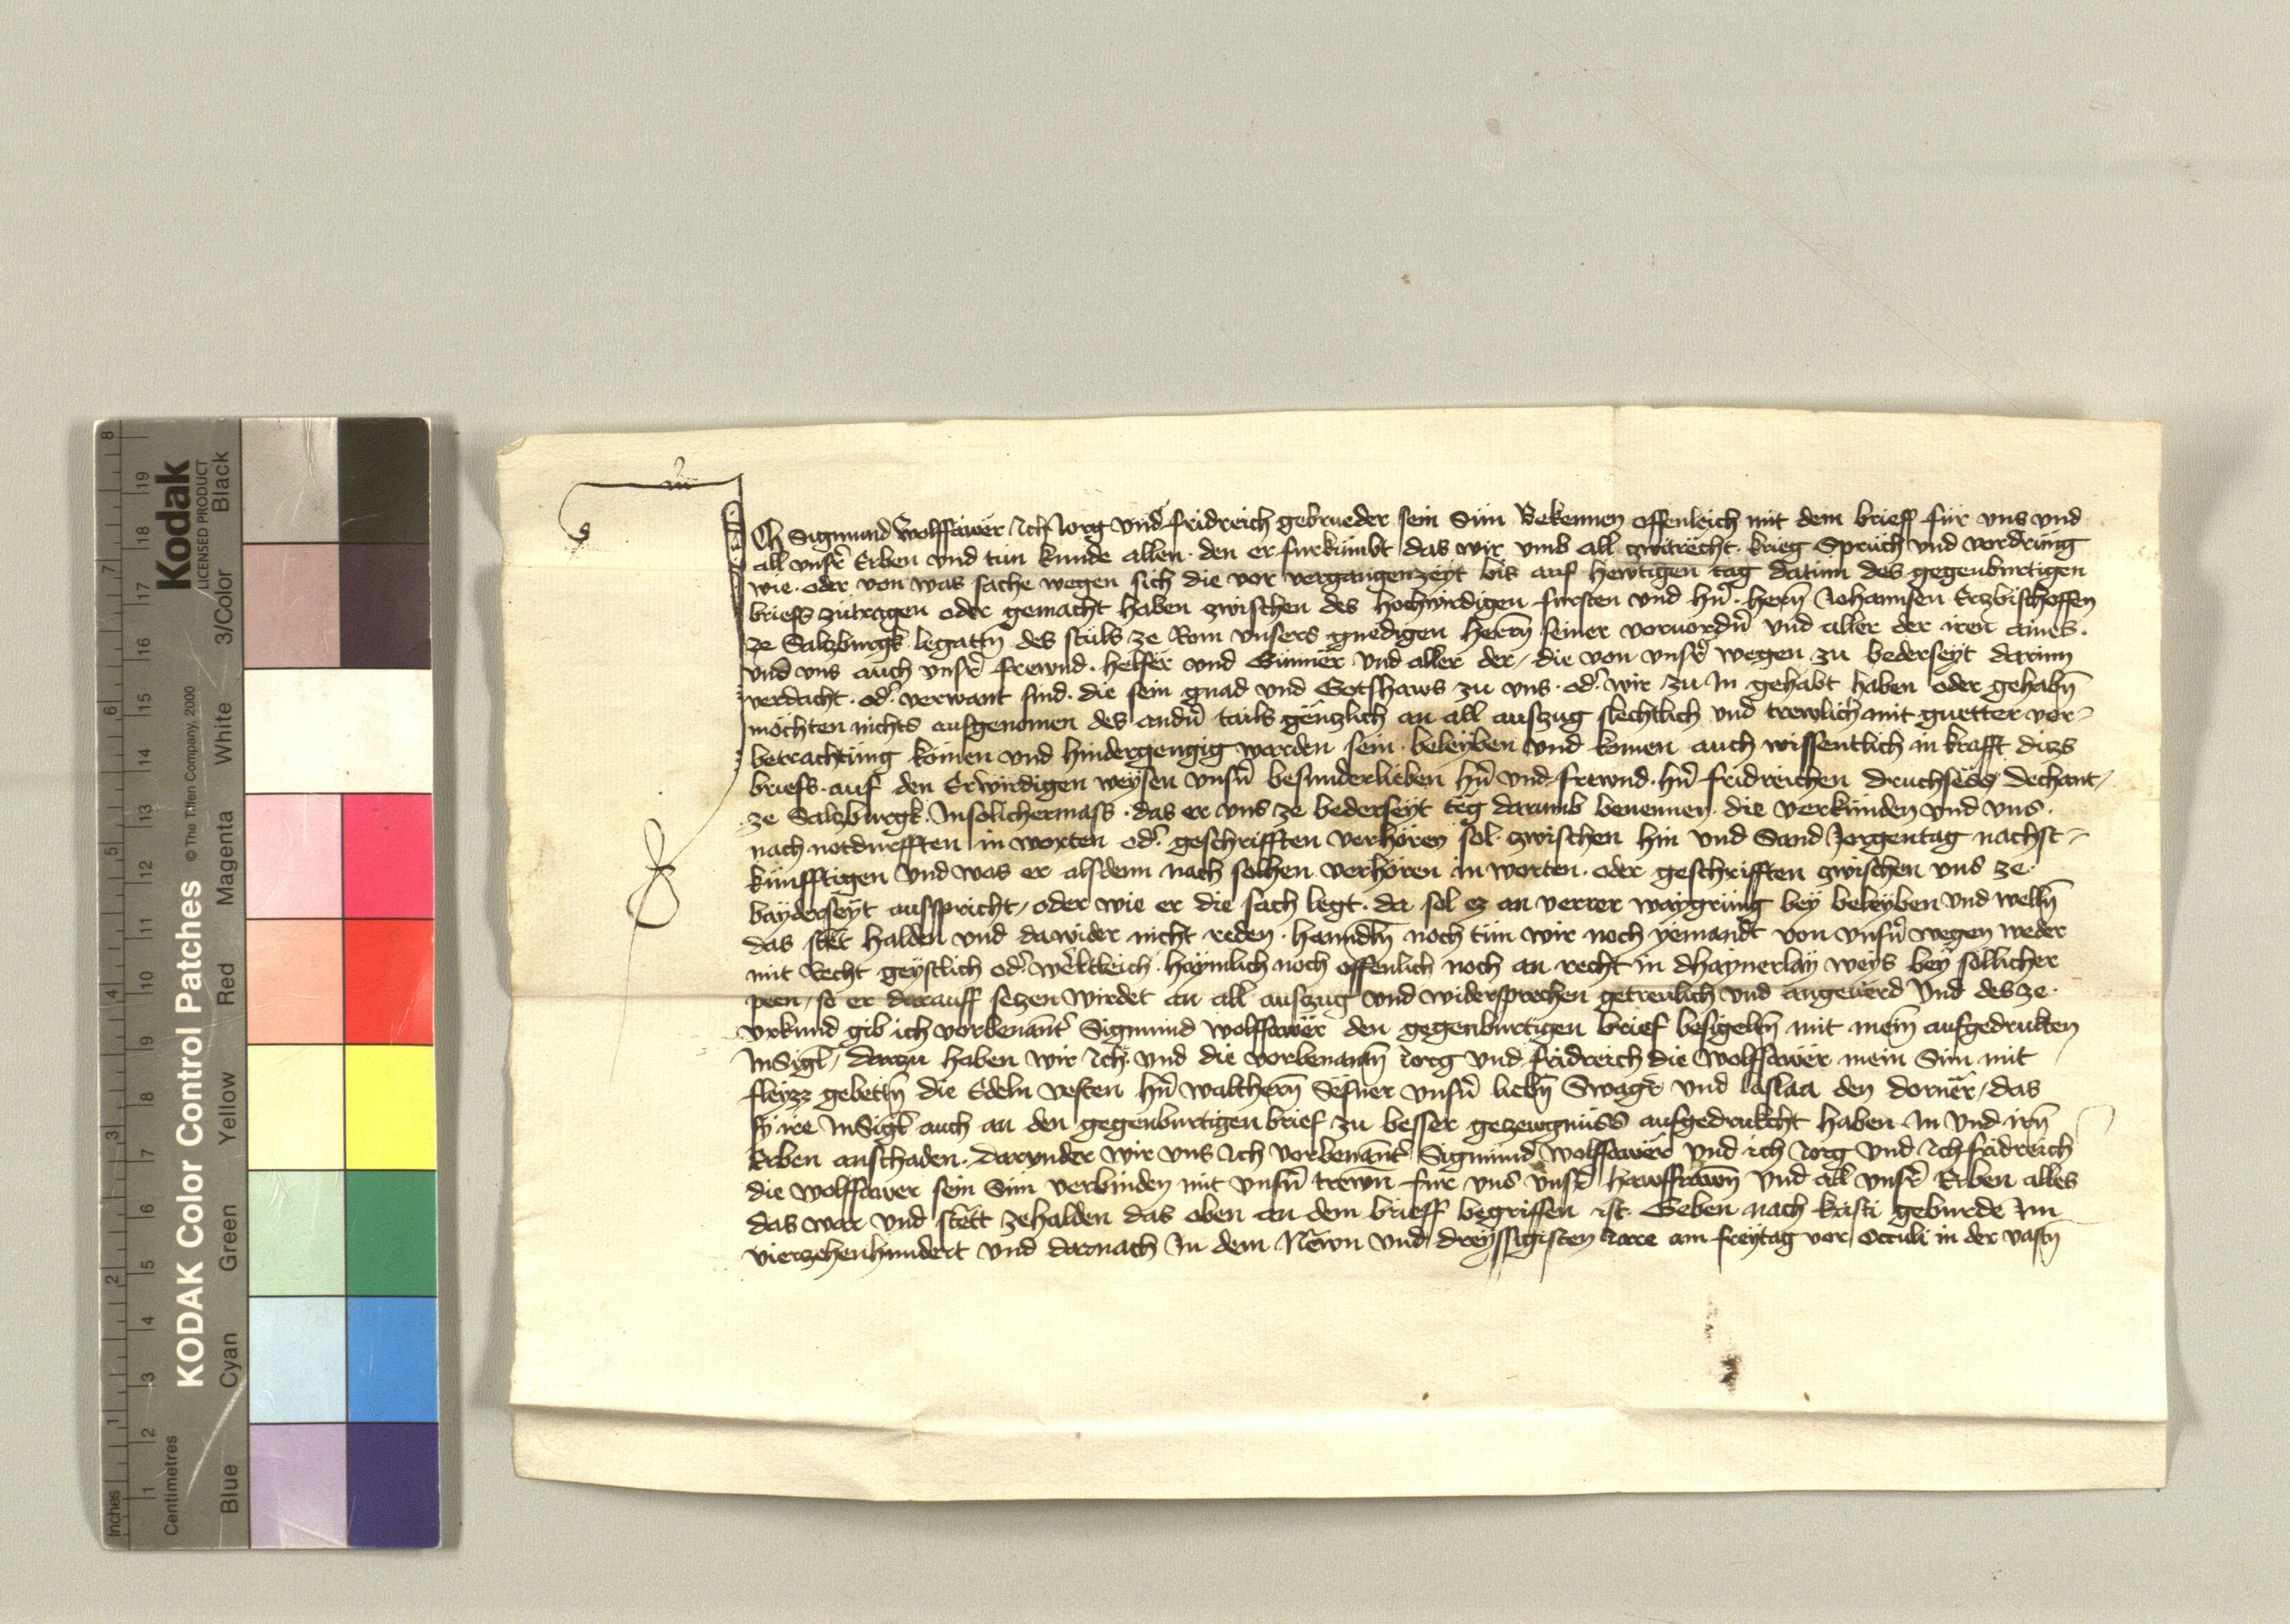 KODAK Color Control Patches © The Tiffen Company, 2000
Kodak
LICENSED PRODUCT
Inches 1 2 3 4 5 6 7 8
Centimetres 1 2 3 4 5 6 7 8 9 10 11 12 13 14 15 16 17 18 19
Blue Cyan Green Yellow Red Magenta White 3/Color Black
Ich Sigmund Wolffawer Ich Jorg vnd fridreich gebrueder sein Sün Bekennen offenleich mit dem brieff für vns vnd
all vnsr̄ Erben vnd tun kunde allen · den er furkümbt das wir vmb all zwitrècht · krieg Sprüch vnd vordrung
wie · oder von was sache wegen sich die vor vergangenzeyt bis auf hewtigen tag datum des gegenburtigen
briefs zutragen oder gemacht haben zwischen des hochwirdigen fursten vnd hn̄ · herrn̄ Johannsen Erzbischoffen
ze Salzburgk legattn̄ des stuls ze Rom vnsers gnedigen herrn̄ seiner voruordn̄ vnd aller der iren aines ·
vnd vns auch vnsr̄ frewnd · helfer vnd Günner vnd aller der / die von vnsr̄ wegen zu bederseyt darinn
verdacht · od̄ · verwant sind · die sein gnad vnd Gotshaws zu vns · od̄ · wir zu In gehabt haben oder gehabn̄
möchten nichts ausgenomen des andn̄ tails gëntzlich an all auszug slechtlich vnd trewlich mit guetter vor=
betrachtung komen vnd hindergengig worden sein · beleyben vnd komen auch wissentlich in krafft diczs
briefs · auf den Erwirdigen weysen vnsn̄ besunderlieben hn̄ vnd frewnd · hn̄ fridreichen druchsëss Dechant /
ze Salzburgk · Insolichermass · das er vns ze bederseyt tëg darumb benennen · die verkünden vnd vns ·
nach notdurfften in worten od̄ · geschrifften verhören sol · zwischen hin vnd Sand Jorgentag nachst=
künfftigen vnd was er alsdenn nach solhen verhören in worten · oder geschrifften zwischen vnd ze ·
bayderseyt ausspricht / oder wie er die sach legt · da sol ez an verrer waygrung bey beleyben vnd welln̄
das stët halden vnd dawider nicht reden · hanndln̄ noch tün wir noch yemandt von vnsn̄ wegen weder
mit Recht geystlich od̄ wèltleich · haymlich noch offenlich noch an recht in dhaynerlay weys bey sollicher
peen / so er darauff setzen wirdet an all auszug vnd widersprechen getreulich vnd angeuerd Vnd des ze ·
vrkund gib ich vorbenant̄ Sigmund Wolffawër den gegenburtigen brief besigeltn̄ mit meīn aufgedrukten
InSigl̄ / darzu haben wir Ich · vnd die vorbenantn̄ Jorg vnd fridreich die Wolffawër mein Sün mit
fleyzz gebetn̄ die Edeln vesten hn̄ walthern̄ Sëfner vnsn̄ liebn̄ Swagr̄ vnd laslaa den dornër / das
sy ire InSigl̄ auch an den gegenburtigen brief zu besser gezewgnüss aufgedrukcht haben In vnd irn̄
Erben anschaden · Darvnder wir vns Ich vorbenant̄ Sigmund Wolffawër vnd ich Jorg vnd Ich fridreich
die wolffawer sein Sün verbinden mit vnsn̄ trewn̄ für vns vnsr̄ hawsfrawn̄ vnd all vnsr̄ Erben alles
das war vnd stëtt zehalden das oben an dem brieff begriffen ist · Geben nach Kristi geburde Im
vierzehenhundert vnd darnach In dem Newn vnd dreyssigisten Jare am freytag vor Occuli in der vastn̄